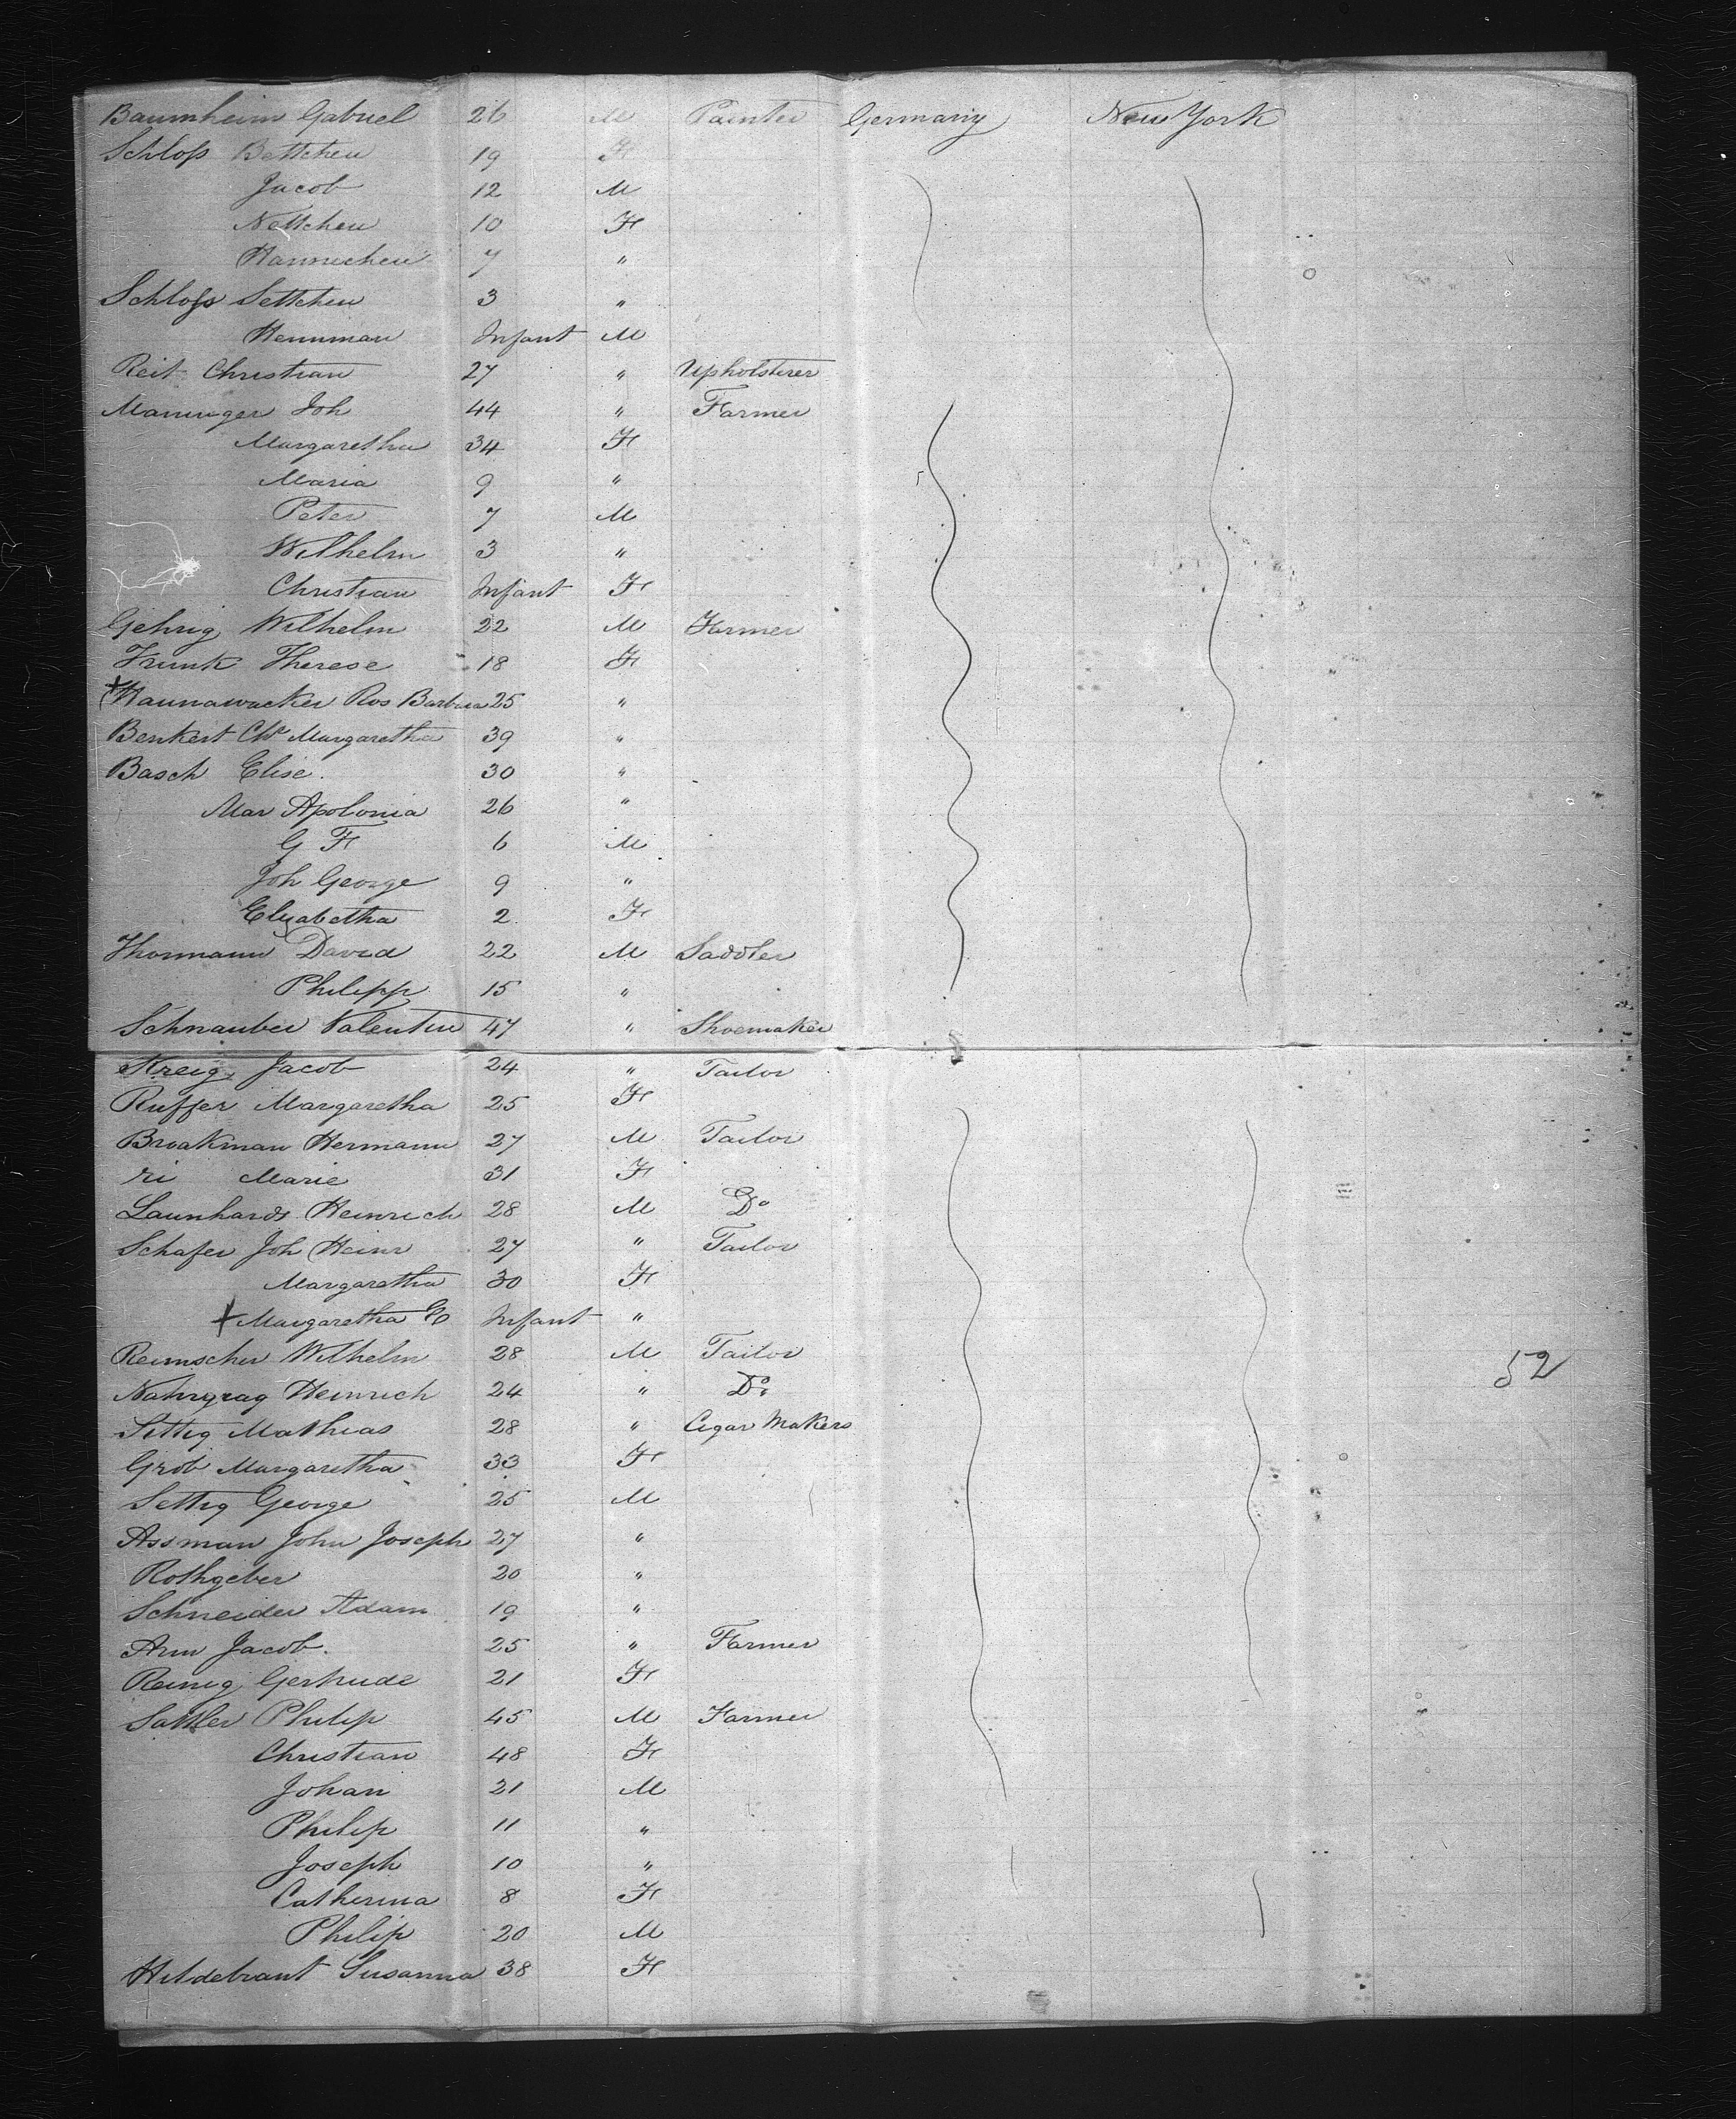 Baumheim Gabriel 26 M Painter Germany New York
Schloss Bettchen 19 F
Jacob 12 M
Nettchen 10 F
Hannechen 7 "
Schloss Settchen 3 "
Hennman Infant M
Reit Christian 27 " Upholsterer
Manninger Joh 44 " Farmer
Margaretha 34 F
Maria 9 "
Peter 7 M
Wilhelm 3 "
Christian Infant F
Gehrig Wilhelm 22 M Farmer
Frunk Therese 18 F
Hannawacker Ros Barbara 25 "
Benkert Chr Margaretha 39 "
Basch Elise. 30 "
Mar Apolonia 26 "
G F 6 M
Joh George 9 "
Elisabetha 2 F
Thormann David 22 M Saddler
Philipp 15 "
Schnauber Valentin 47 " Shoemaker
Kreig Jacob 24 " Tailor
Ruffer Margaretha 25 F
Broakman Hermann 27 M Tailor
ri Marie 31 F
Launhards Heinrich 28 M Do
Schafer Joh Heinr 27 " Tailor
Margaretha 30 F
Margaretha E Infant "
Reimscher Wilhelm 28 M Tailor
Nahrgrag Heinrich 24 " Do
Sittig Mathias 28 " Cigar Makers
Grob Margaretha 33 F
Settig George 25 M
Assman John Joseph 27 "
Rothgeber 20 "
Schneider Adam 19 "
Arm Jacob. 25 " Farmer
Reinig Gertrude 21 F
Sattler Philip 45 M Farmer
Christian 48 F
Johan 21 M
Philip 11 "
Joseph 10 "
Catherina 8 F
Philip 20 M
Hildebrant Susanna 38 F
52